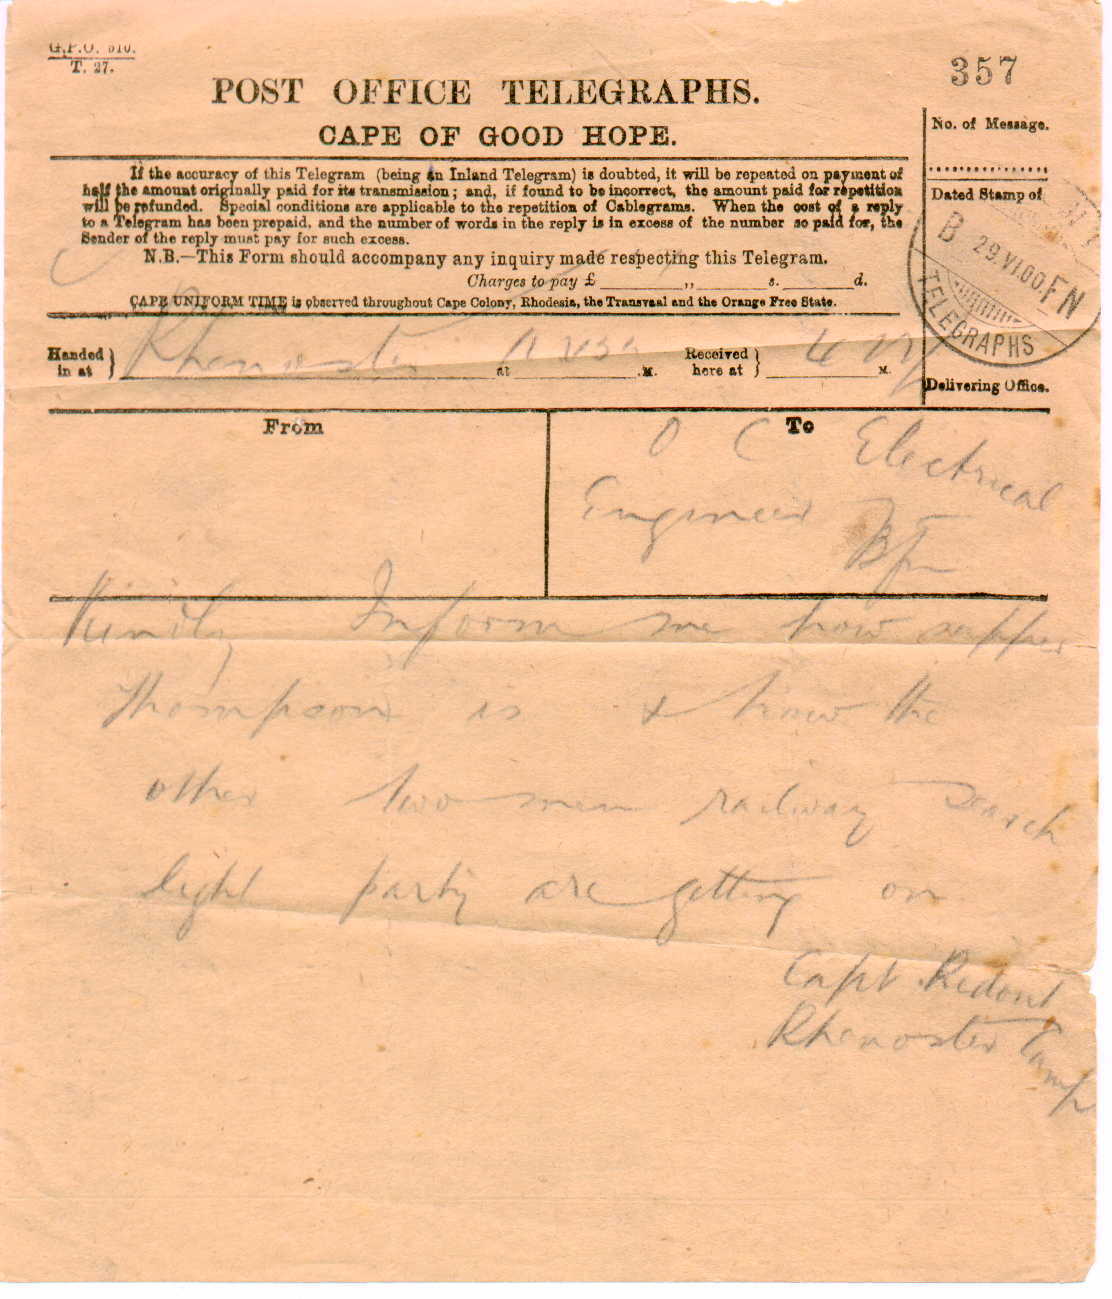 G.P.O. 510.
T. 27.
357
POST OFFICE TELEGRAPHS.
CAPE OF GOOD HOPE.
No. of Message.
If the accuracy of this Telegram (being an Inland Telegram) is doubted, it will be repeated on payment of
half the amount originally paid for its transmission; and, if found to be incorrect, the amount paid for repetition
will be refunded. Special conditions are applicable to the repetition of Cablegrams. When the cost of a reply
to a Telegram has been prepaid, and the number of words in the reply is in excess of the number so paid for, the
Sender of the reply must pay for such excess.
N.B.—This Form should accompany any inquiry made respecting this Telegram.
Charges to pay £ ,, s. d.
CAPE UNIFORM TIME is observed throughout Cape Colony, Rhodesia, the Transvaal and the Orange Free State.
Dated Stamp of
B 29.VI.00. FN
TELEGRAPHS
Handed in at } Rhenoster at .M. Received here at } M.
Delivering Office.
From
To
O C Electrical
Engineer
Bfn
Kindly Inform me how sapper
Thompson is & how the
other two men railway search
light party are getting on
Capt Ridout
Rhenoster Camp